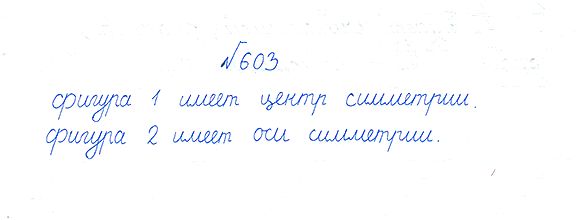 №603
фигура 1 имеет центр симметрии.
фигура 2 имеет оси симметрии.